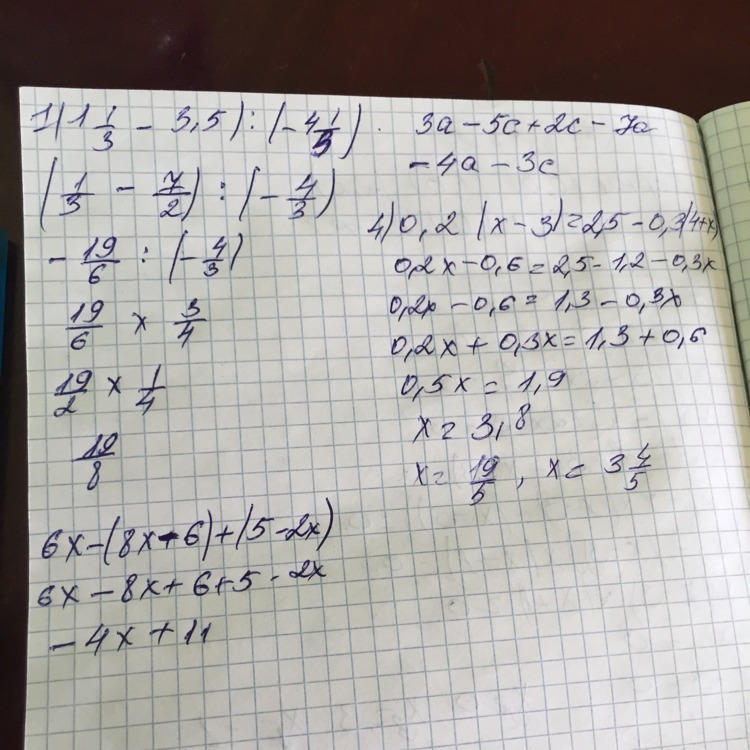 1) (1 1/3 - 3,5) : (-4 1/3).
(1/3 - 7/2) : (-4/3)
-19/6 : (-4/3)
19/6 x 3/4
19/2 x 1/4
19/8
6x-(8x-6)+(5-2x)
6x-8x+6+5-2x
-4x+11
3a-5c+2c-7a
-4a-3c
4) 0,2 (x-3)=2,5-0,3(4+x)
0,2x-0,6=2,5-1,2-0,3x
0,2x-0,6=1,3-0,3x
0,2x+0,3x=1,3+0,6
0,5x=1,9
x=3,8
x=19/5, x=3 4/5